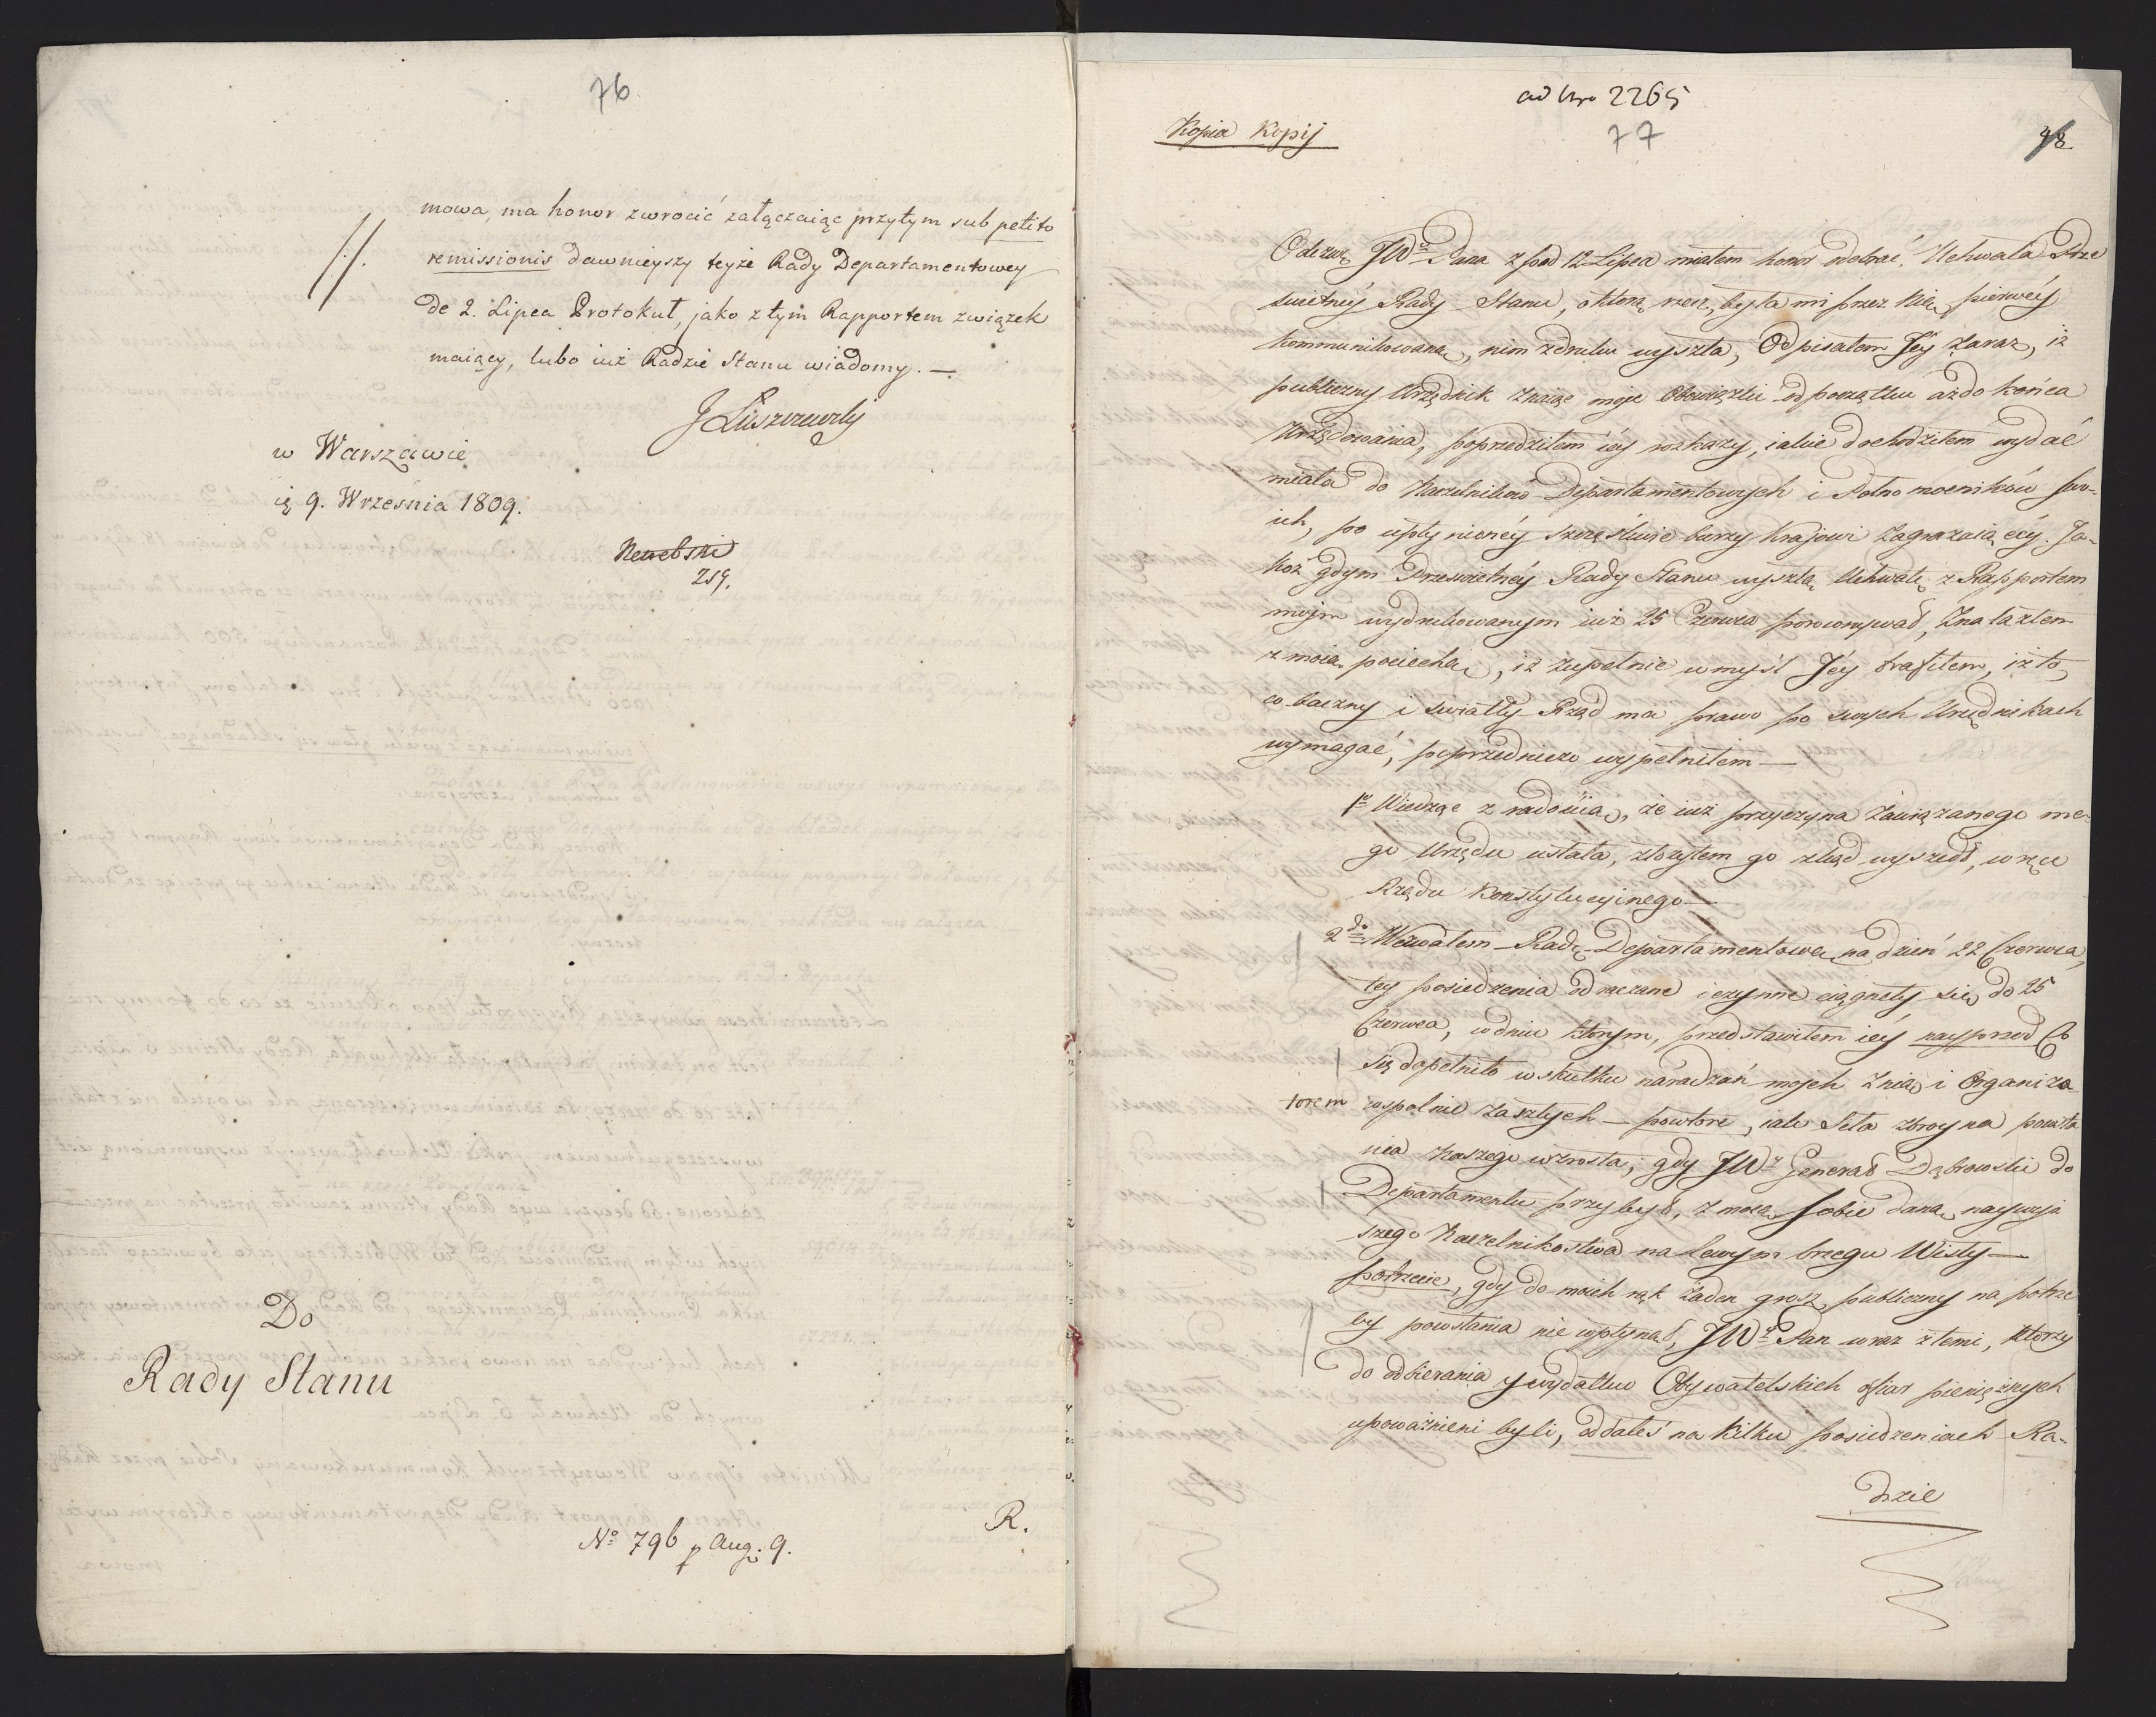 76
mowa, ma honor zwrocić załączaiąc przytym sub petito
remissionis dawnieyszy teyże Rady Departamentowey
de 2. Lipca Protokuł, jako z tym Rapportem związek
maiący, lubo iuż Radzie Stanu wiadomy. —
J Łuszczewski
w Warszawie
9. Września 1809.
219.
Do
Rady Stanu
R.
No 796 p Aug. 9.
ad Nro 2265
Kopia Kopij
77
Odezwę JWo Pana z pod 12 Lipca miałem honor odebrać. Uchwała Prze
swietnéy Rady Stanu, o którą rzecz, była mi przez Nią pierwéy
kommunikowaną, nim z druku wyszła, Odpisałem Jéy zaraz, iż
publiczny Urzędnik znaiąc moje Obowiązki od początku aż do końca
Urzędowania, poprzedziłem iéy rozkazy, iakie dochodziłem wydać
miała do Naczelników Departamentowych i Pełnomocników swo-
ich, po upłynionéy szczęśliwie burzy Krajowi zagrażaiącéy. Ja-
koż gdym Prześwietnéy Rady Stanu wyszłą Uchwałę z Rapportem
mojm wydrukowanym iuż 25 Czerwca porównywał, Znalazłem
z moią pociechą, iż zupełnie w myśl Jéy trafiłem, iż to,
co baczny i światły Rząd ma prawo po swych Urzędnikach
wymagać, poprzedniczo wypełniłem —
1o Wiedząc z radością, że iuż przyczyna zawiązanego me-
go Urzędu ustała, złożyłem go zkąd wyszedł, w ręce
Rządu Konstytucyjnego —
2do Wezwałem Radę Departamentową na dzień 22 Czerwca,
tey posiedzenia odraczane i czynne ciągnęły się do 25
Czerwca, w dniu którym, przedstawiłem iéy nayprzod Co
się dopełniło w skutku naradzań mojch z nią i Organiza
torem wspolnie zaszłych — powtore, iak Siła zbroyna powsta
nia Naszego wzrosła, gdy JWy Generał Dąbrowski do
Departamentu przybył, z mocą sobie daną naywyż
szego Naczelnikostwa na lewym brzegu Wisły —
potrzecie, gdy do moich rąk żaden grosz publiczny na potrze
by powstania nie wpłynął, JWy Pan wraz z temi, ktorzy
do odbierania y wydatku Obywatelskich ofiar pieniężnych
upoważnieni byli, oddałeś na kilku posiedzeniach Ra-
dzie